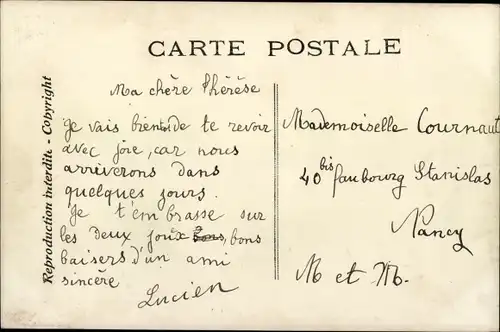 CARTE POSTALE
Reproduction interdite - Copyright
Ma chère Thérèse
Je vais bientôde te revoir
avec joie, car nous
arriverons dans
quelques jours.
Je t'embrasse sur
les deux joux bons, bons
baisers d'un ami
sincère
Lucien
Mademoiselle Cournaut
40 bis faubourg Stanislas
Nancy
M et M.